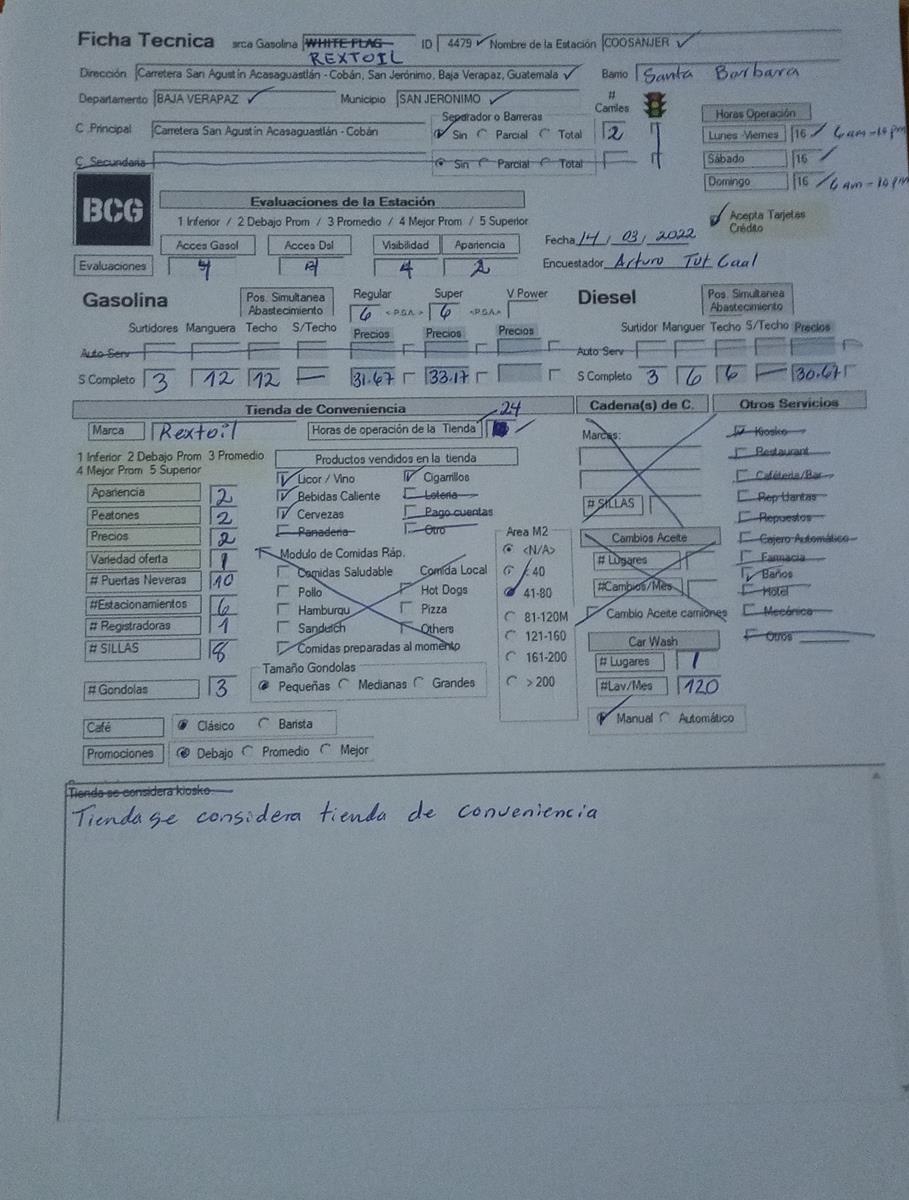 Ficha Tecnica arca Gasolina WHITE FLAG ID 4479 Nombre de la Estación COOSANJER
REXTOIL
Dirección Carretera San Agustín Acasaguastlán - Cobán, San Jerónimo, Baja Verapaz, Guatemala Barrio Santa Barbara
Departamento BAJA VERAPAZ Municipio SAN JERONIMO # Carriles
Separador o Barreras Horas Operación
C .Principal Carretera San Agustín Acasaguastlán - Cobán Sin Parcial Total 2 Lunes -Viernes 16 6 am - 10 pm
C. Secundaria Sin Parcial Total Sábado 16
Domingo 16 6 am - 10 pm
BCG Evaluaciones de la Estación
1 Inferior / 2 Debajo Prom / 3 Promedio / 4 Mejor Prom / 5 Superior
Acepta Tarjetas Crédito
Acces Gasol Acces Dsl Visibilidad Apariencia Fecha 14 / 03 / 2022
Evaluaciones 4 2 Encuestador Arturo Tut Caal
Gasolina Pos. Simultanea Abastecimiento Regular Super V Power Diesel Pos. Simultanea Abastecimiento
6 < P.G.A. > 6 <P.G.A.>
Surtidores Manguera Techo S/Techo Precios Precios Precios Surtidor Manguer Techo S/Techo Precios
Auto Serv Auto Serv
S Completo 3 12 12 — 31.67 33.17 S Completo 3 6 6 — 30.67
Tienda de Conveniencia 24 Cadena(s) de C. Otros Servicios
Marca Rextoil Horas de operación de la Tienda Marcas: Kiosko
1 Inferior 2 Debajo Prom 3 Promedio
4 Mejor Prom 5 Superior
Productos vendidos en la tienda Restaurant
Licor / Vino Cigarrillos Cafétería/Bar
Apariencia 2 Bebidas Caliente Loteria # SILLAS Rep Llantas
Peatones 2 Cervezas Pago cuentas Repuestos
Precios 2 Panaderia Otro Area M2 Cambios Aceite Cajero Automático
Variedad oferta 1 Modulo de Comidas Ráp. <N/A> # Lugares Farmacia
# Puertas Neveras 10 Comidas Saludable Comida Local < 40 #Cambios/Mes Baños
#Estacionamientos 6 Pollo Hot Dogs 41-80 Hotel
# Registradoras 1 Hamburqu Pizza 81-120M Cambio Aceite camiones Mecánica
# SILLAS 8 Sandwich Others 121-160 Car Wash Otros
Comidas preparadas al momento 161-200 # Lugares 1
# Gondolas 3 Tamaño Gondolas > 200 #Lav/Mes 120
Pequeñas Medianas Grandes
Café Clásico Barista Manual Automático
Promociones Debajo Promedio Mejor
Tienda se considera kiosko
Tienda se considera tienda de conveniencia